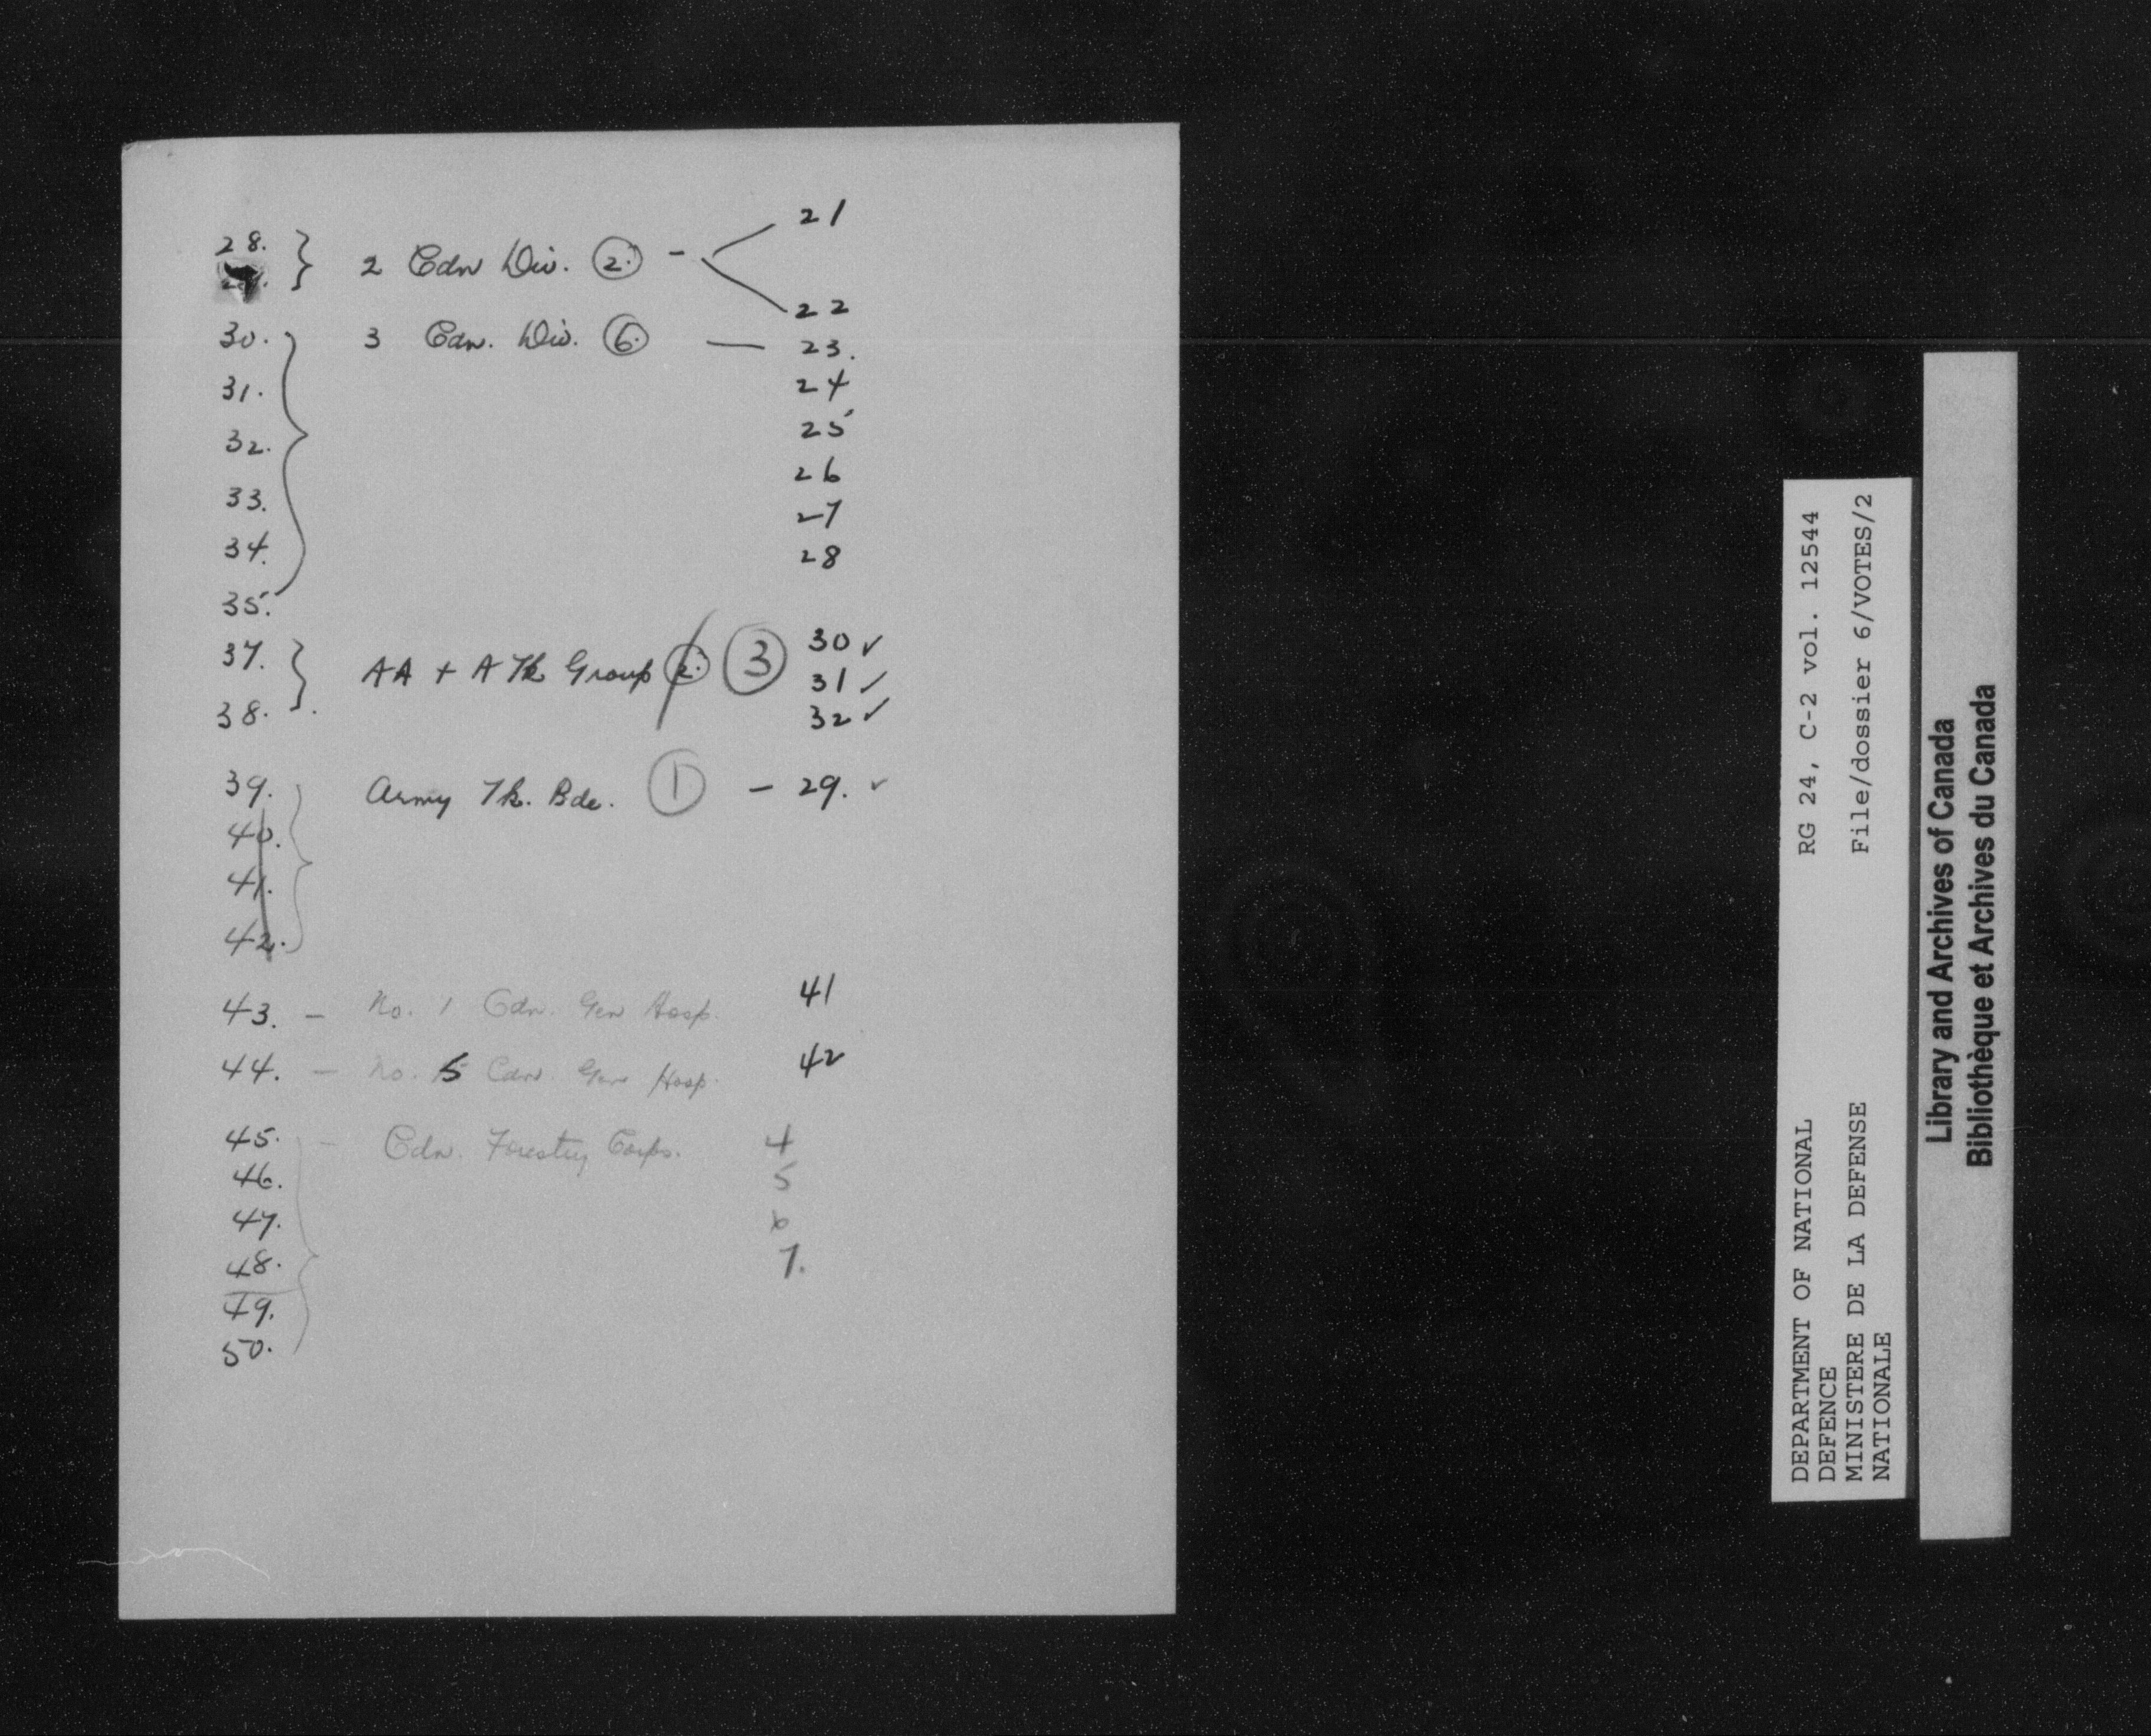 21
28. } 2 Cdn Div. (2.) -
29.
22
30. 3 Cdn. Div. (6.) — 23.
31. 24
32. 25
33. 26
34. 27
35. 28
37. } AA + A Tk Group (2.) (3) 30 ✓
31 ✓
38. 32 ✓
39. Army Tk. Bde. (1) - 29. ✓
40.
41.
42.
43. - No. 1 Cdn. Gen Hosp. 41
44. - No. 5 Cdn. Gen Hosp. 42
45. - Cdn. Forestry Corps. 4
46. 5
47. 6
48. 7.
49.
50.
DEPARTMENT OF NATIONAL
DEFENCE
MINISTERE DE LA DEFENSE
NATIONALE
RG 24, C-2 vol. 12544
File/dossier 6/VOTES/2
Library and Archives of Canada
Bibliothèque et Archives du Canada